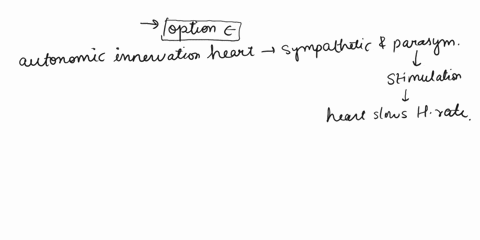 → option E
autonomic innervation heart → sympathetic & parasym.
↓
Stimulation
↓
heart slows H.rate.